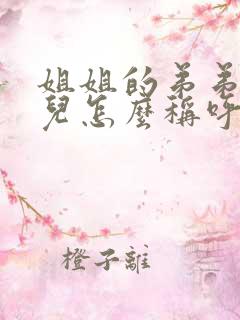 姐姐的弟弟
兒怎麼稱呼
橙子離